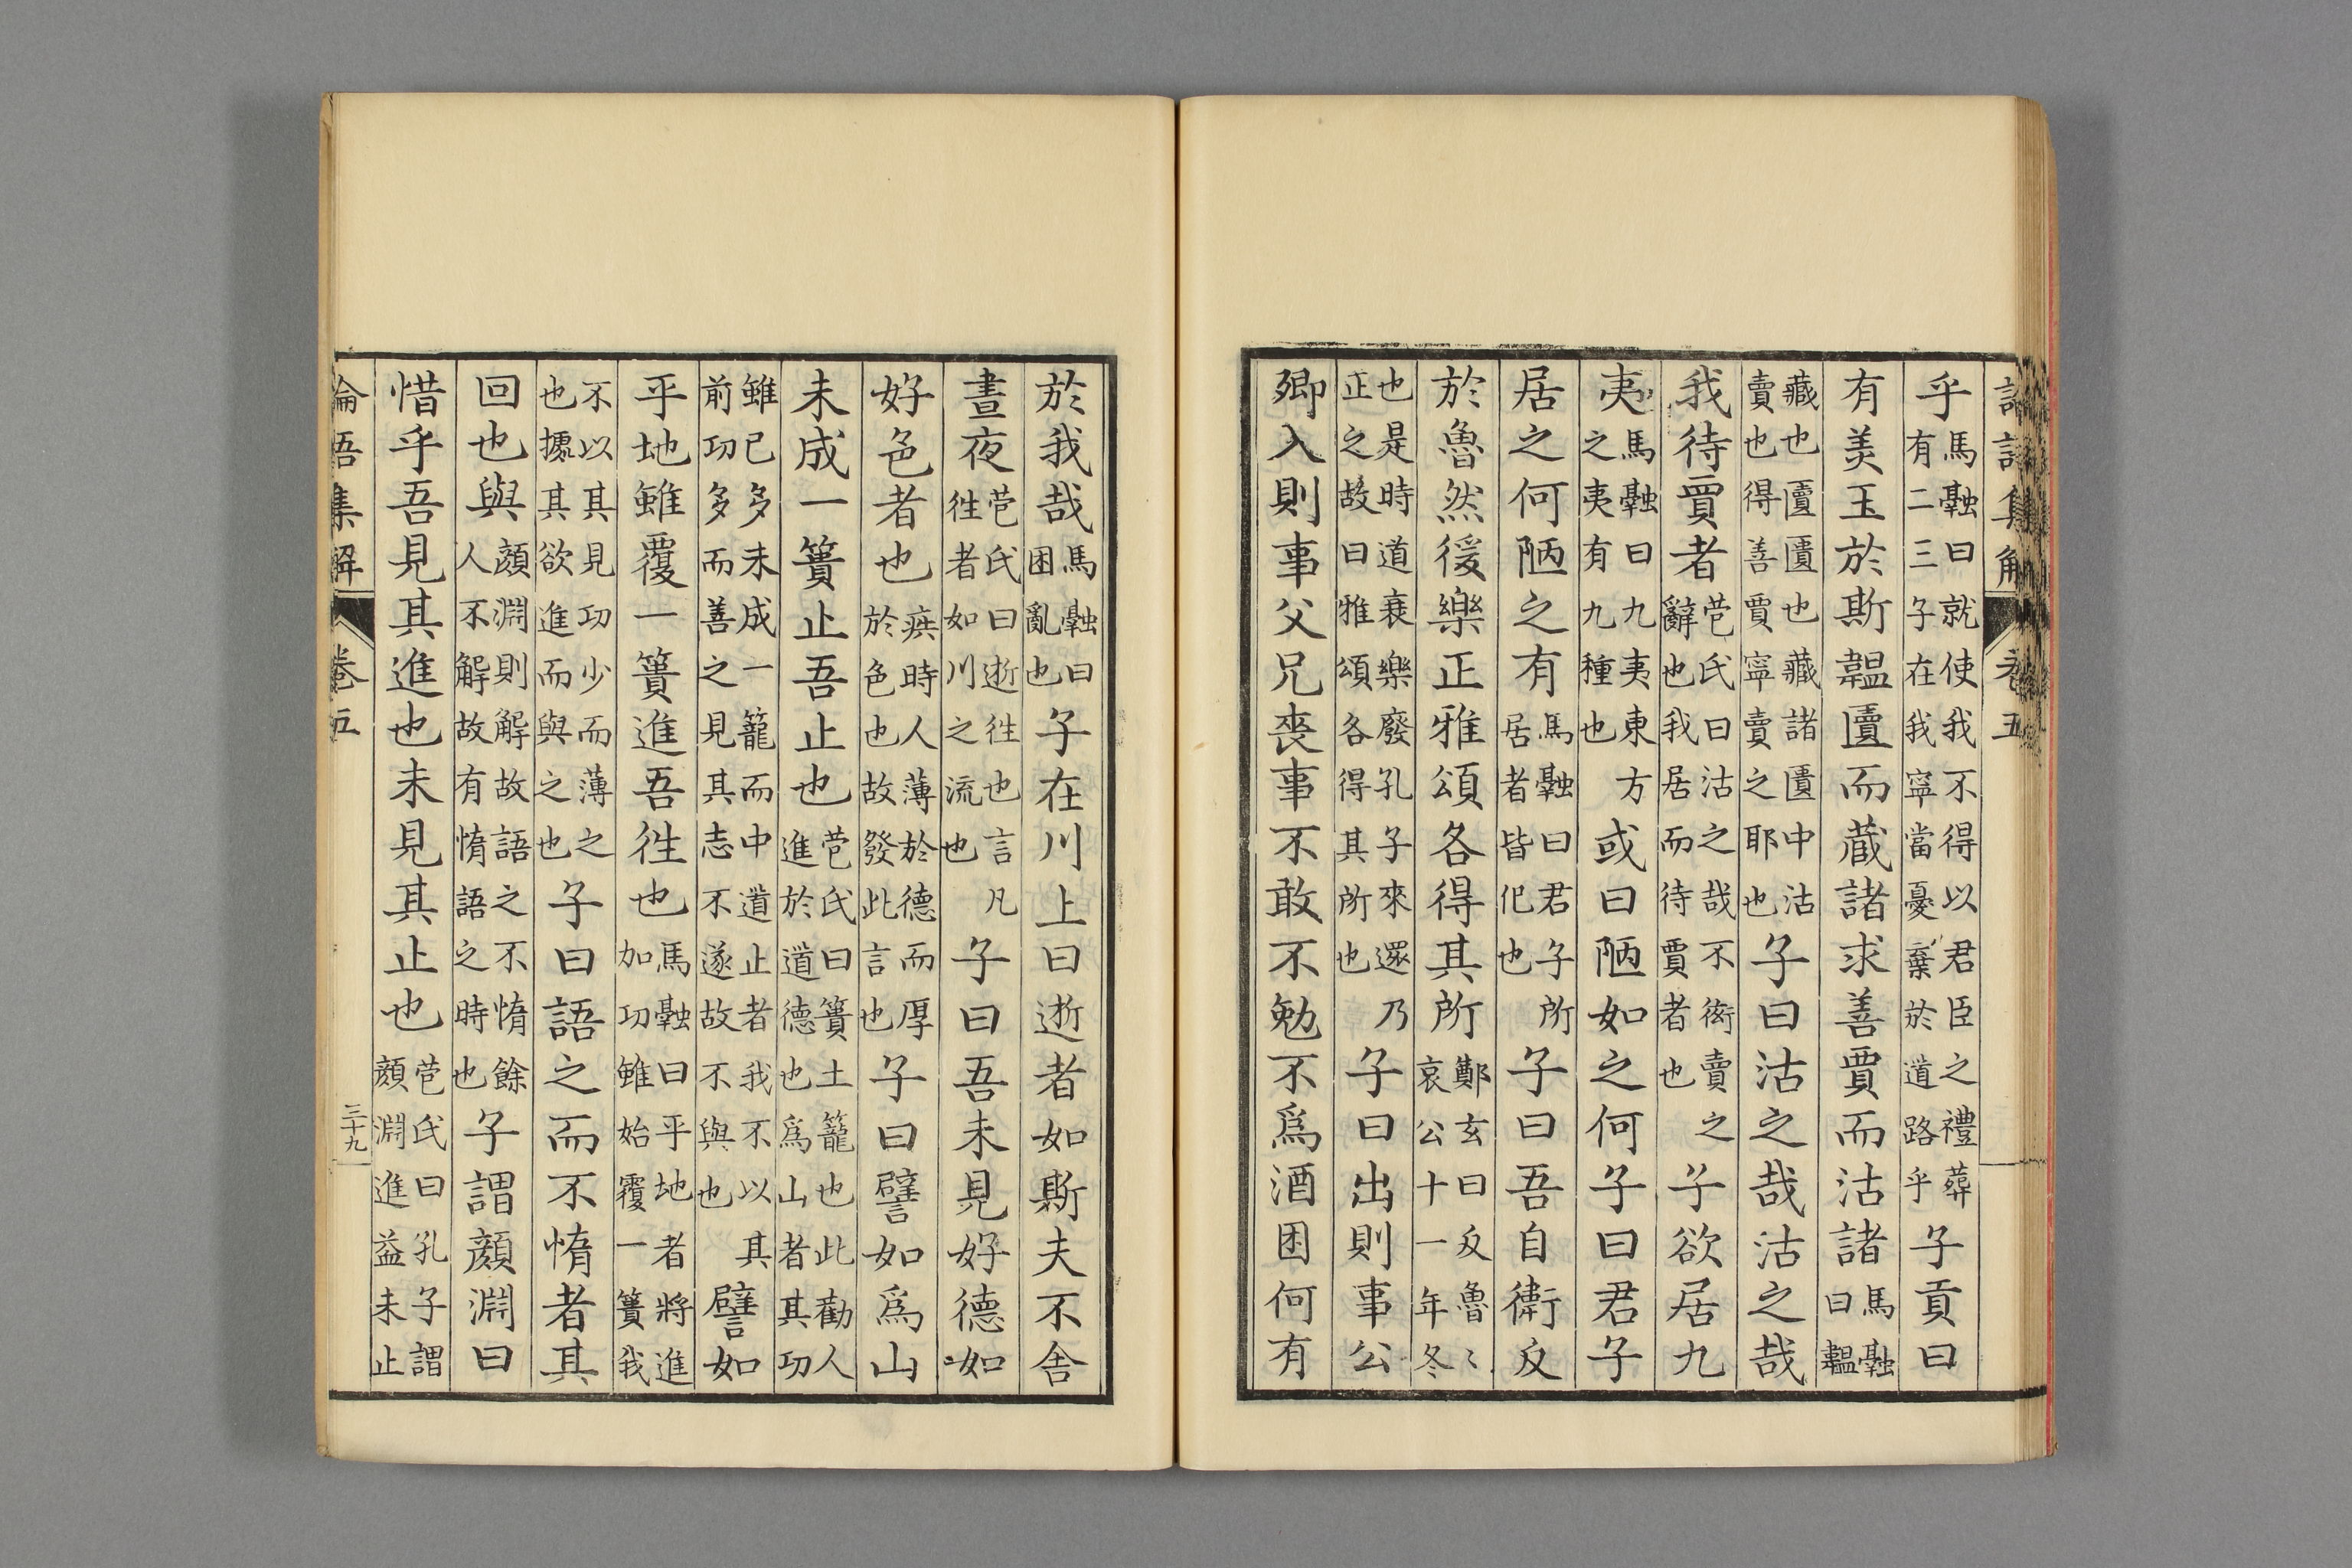 論語集解 卷五
乎馬融曰就使我不得以君臣之禮葬有二三子在我寧當憂棄於道路乎子貢曰
有美玉於斯韞匵而藏諸求善賈而沽諸馬融曰韞
藏也匵匱也藏諸匱中沽賣也得善賈寧賣之耶也子曰沽之哉沽之哉
我待賈者苞氏曰沽之哉不衒賣之辭也我居而待賈者也子欲居九
夷馬融曰九夷東方之夷有九種也或曰陋如之何子曰君子
居之何陋之有馬融曰君子所居者皆化也子曰吾自衛反
於魯然後樂正雅頌各得其所鄭玄曰反魯〻哀公十一年冬
也是時道衰樂廢孔子來還乃正之故曰雅頌各得其所也子曰出則事公
卿入則事父兄喪事不敢不勉不爲酒困何有
於我哉馬融曰困亂也子在川上曰逝者如斯夫不舍
晝夜苞氏曰逝往也言凡往者如川之流也子曰吾未見好德如
好色者也疾時人薄於德而厚於色也故發此言也子曰譬如爲山
未成一簣止吾止也苞氏曰簣土籠也此勸人進於道德也爲山者其功
雖已多未成一籠而中道止者我不以其前功多而善之見其志不遂故不與也譬如
平地雖覆一簣進吾往也馬融曰平地者將進加功雖始覆一簣我
不以其見功少而薄之也據其欲進而與之也子曰語之而不惰者其
回也與顔淵則解故語之不惰餘人不解故有惰語之時也子謂顔淵曰
惜乎吾見其進也未見其止也苞氏曰孔子謂顔淵進益未止
論語集解 卷五 三十九